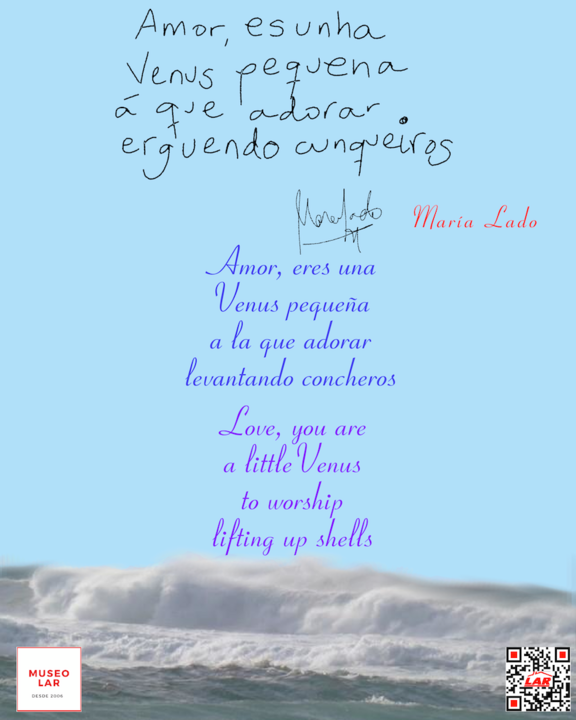 Amor, es unha
Venus pequena
á que adorar
erguendo cunqueiros
María Lado
María Lado
Amor, eres una
Venus pequeña
a la que adorar
levantando concheros
Love, you are
a little Venus
to worship
lifting up shells
MUSEO
LAR
DESDE 2006
LAR